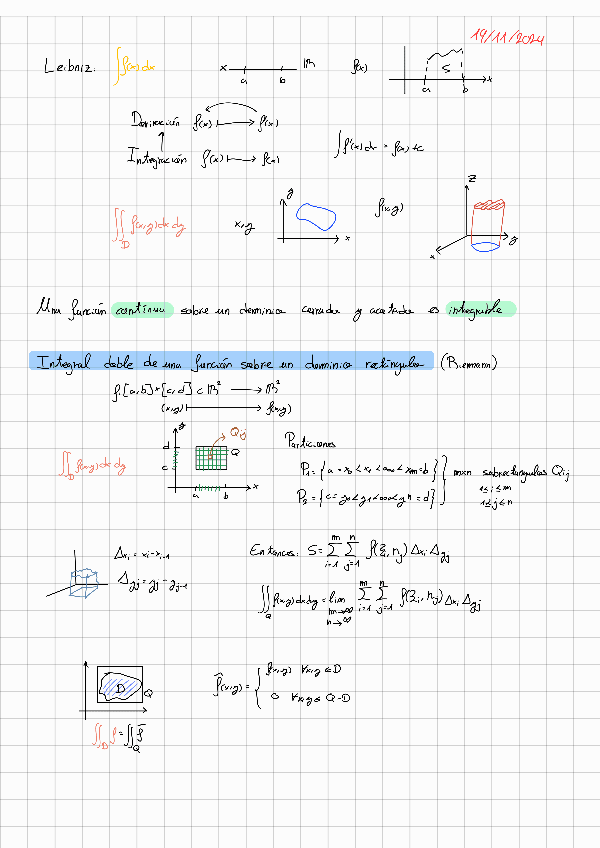 19/11/2024
Leibniz: ∫f(x)dx x a b ℝ f(x) S a b x
Derivación f(x) ⟼ f'(x)
Integración f'(x) ⟼ f(x) ∫f'(x)dx = f(x)+c
∬_D f(x,y)dxdy x,y y x f(x,y) z x y
Una función continua sobre un dominio cerrado y acotado es integrable
Integral doble de una función sobre un dominio rectángular (Riemann)
f:[a,b]×[c,d] ⊂ ℝ² ⟶ ℝ²
(x,y) ⟼ f(x,y)
∬_D f(x,y)dxdy y d c a b x Q Qij
Particiones
P₁ = {a = x₀ < x₁ < ... < xm = b}
P₂ = {c = y₀ < y₁ < ... < yn = d} } m×n subrectángulos Qij
1≤i≤m
1≤j≤n
Δxi = xi - xi-1
Δyj = yj - yj-1
Entonces: S = Σ_{i=1}^{m} Σ_{j=1}^{n} f(ξi, ηj) Δxi Δyj
∬_Q f(x,y)dxdy = lim_{m→∞ n→∞} Σ_{i=1}^{m} Σ_{j=1}^{n} f(ξi, ηj) Δxi Δyj
D Q
f̂(x,y) = { f(x,y) ∀x,y ∈ D
0 ∀x,y ∈ Q-D
∬_D f = ∬_Q f̂